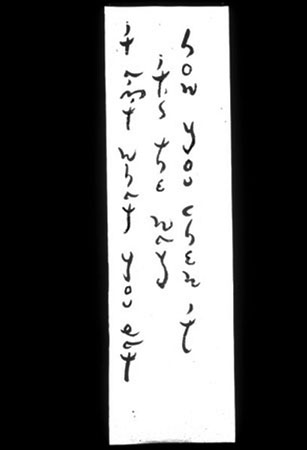 it aint what you eat
its the way
how you chew it